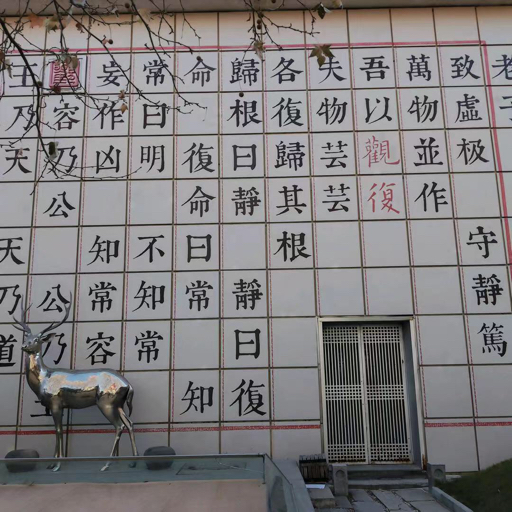 老子
致虛极 守靜篤
萬物並作
吾以觀復
夫物芸芸
各復歸其根
歸根曰靜 靜曰復
命 復命曰常 知
常曰明 不知常
妄作凶 知常容
容乃公 公乃王
王乃天 天乃道